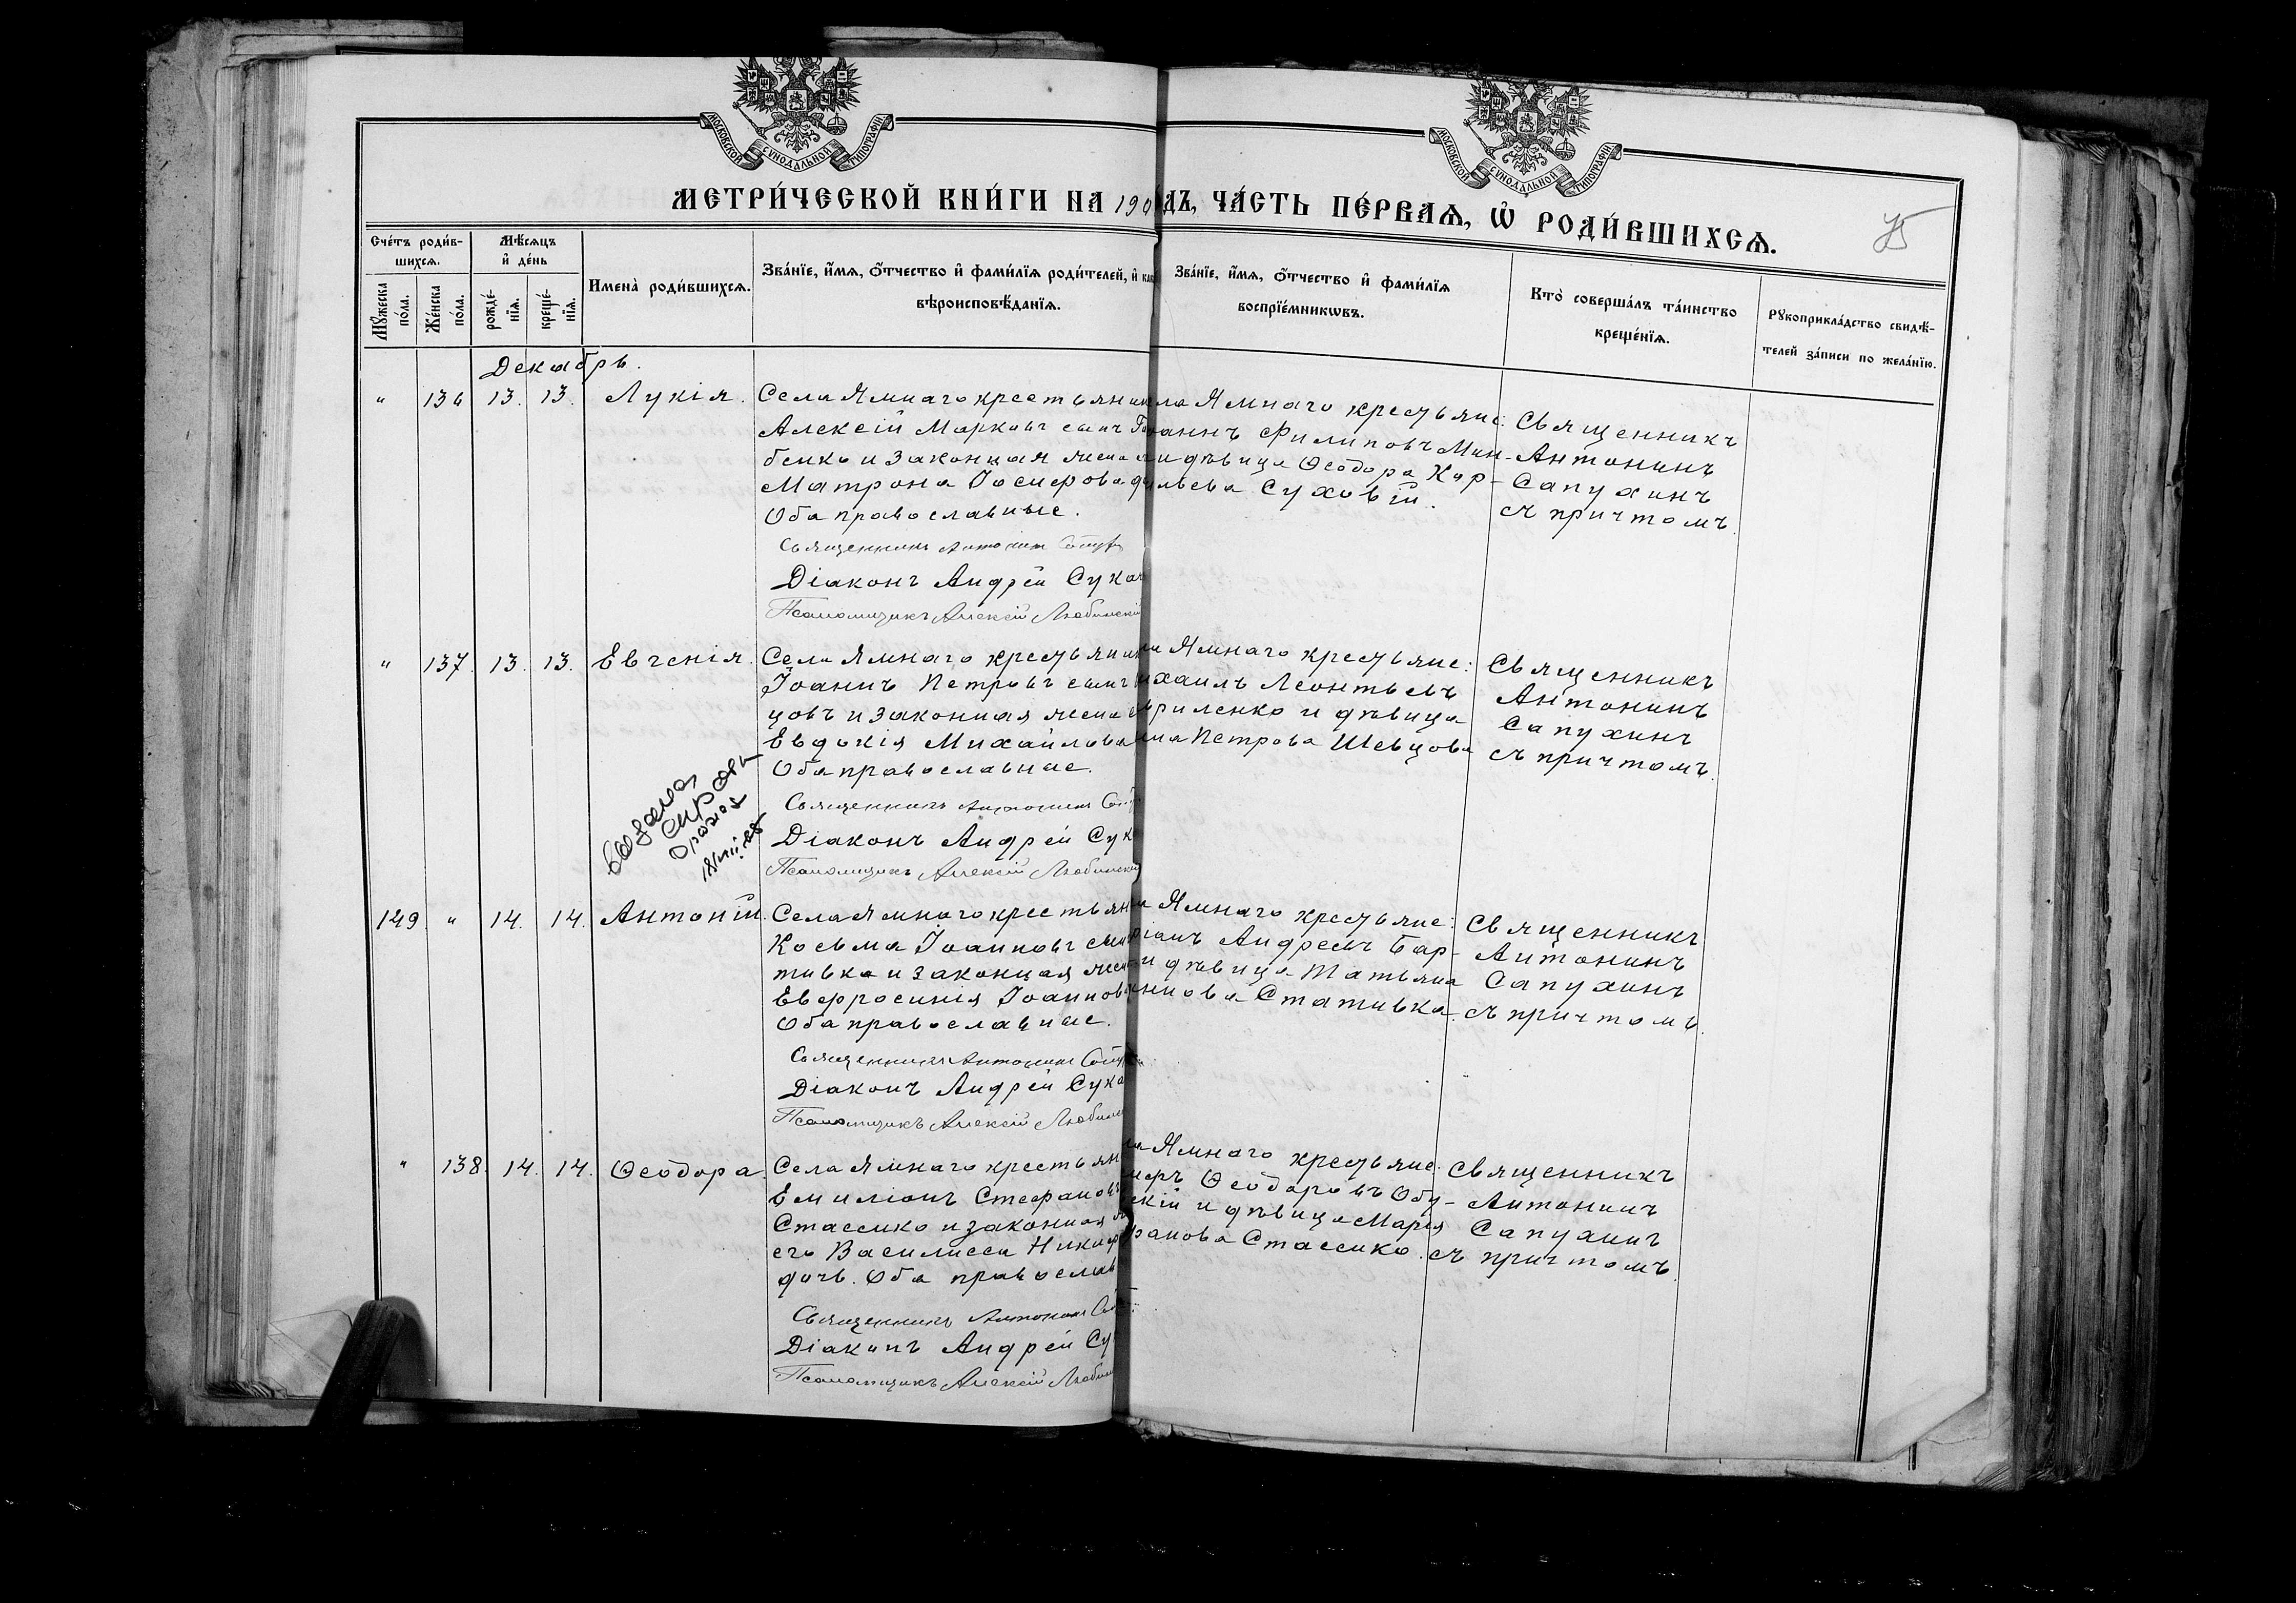 МОСКОВСКОЙ СУНОДАЛЬНОЙ ТИПОГРАФІИ
МОСКОВСКОЙ СУНОДАЛЬНОЙ ТИПОГРАФІИ
МЕТРИ́ЧЕСКОЙ КНИ́ГИ НА 190
ДЪ, ЧА́СТЬ ПЕ́РВАѦ, Ѡ҆ РОДИ́ВШИХСѦ.
75
Сче́тъ роди́в-
шихсѧ.
Мѣ́сѧцъ
и҆ де́нь
Мꙋ́жеска
по́ла.
Же́нска
по́ла.
рожде́-
нїѧ.
креще́-
нїѧ.
Имена̀ роди́вшихсѧ.
Зва́нїе, и҆́мѧ, ѻ҆́тчество и҆ фами́лїѧ роди́телей, и҆
вѣроисповѣ́данїѧ.
Зва́нїе, и҆́мѧ, ѻ҆́тчество и҆ фами́лїѧ
воспрїе́мникѡвъ.
Кто̀ соверша́лъ та́инство
креще́нїѧ.
Рꙋкоприкла́дство свидѣ́-
телей за́писи по жела́нїю.
Декабрь.
" 136 13. 13. Лукія.
Села Ямнаго крестьянин
Алексій Марковъ сынъ
бенко и законная жена
Матрона Іосифова
Оба православные.
Священникъ Антонин
Діаконъ Андрей Сука
Псаломщикъ Алексій Любинскій
ла Ямнаго крестьяне:
оаннъ Филиповъ Мин-
и дѣвица Ѳеодора Кар-
ьева Суховій.
Священникъ
Антонинъ
Сапухинъ
съ причтомъ.
" 137. 13. 13. Евгенія.
Села Ямнаго крестьянин
Іоаннъ Петровъ сынъ
цовъ и законная жена
Евдокія Михайлова
Оба православные.
Священникъ Антонин
Діаконъ Андрей Сук
Псаломщикъ Алексій Любинскій
Ямнаго крестьяне:
хаилъ Леонтьевъ
риленко и дѣвица
Петрова Шевцова
Священникъ
Антонинъ
Сапухинъ
съ причтомъ.
149 " 14. 14. Антоній.
Села Ямнаго крестьян
Косьма Іоанновъ сын
тивка и законная жен
Евфросинія Іоаннов
Оба православные.
Священникъ Антонин
Діаконъ Андрей Сука
Псаломщикъ Алексій Любинс
Ямнаго крестьяне:
Андреевъ Бар-
и дѣвица Татьяна
ннова Стативка.
Священникъ
Антонинъ
Сапухинъ
съ причтомъ.
" 138. 14. 14. Ѳеодора.
Села Ямнаго крестьян
Емиліонъ Стефанов
Стасенко и законная
его Василисса Никиф
дочь. Оба православ
Священникъ Антонин
Діаконъ Андрей Су
Псаломщикъ Алексій Любин
Ямнаго крестьяне:
Ѳеодоровъ Обу-
скій и дѣвица Марія
фанова Стасенко.
Священникъ
Антонинъ
Сапухинъ
съ причтомъ.